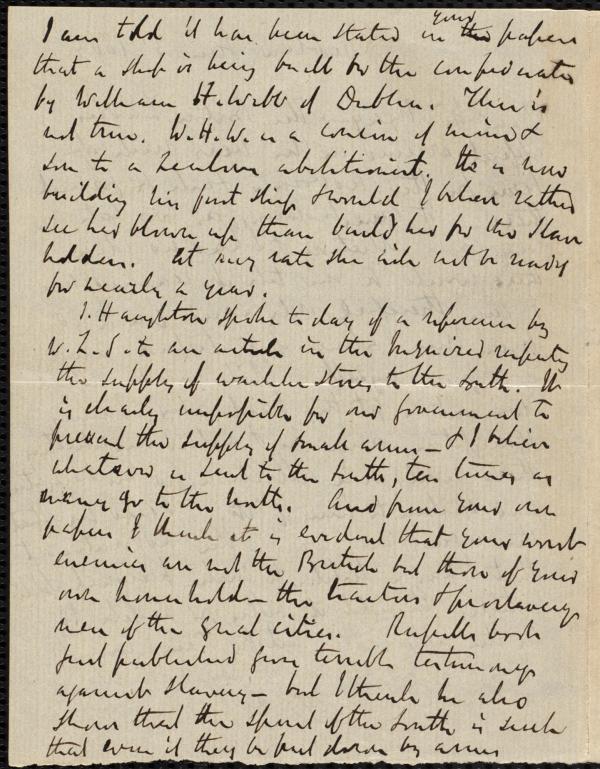 I am told it has been stated in your the papers
that a ship is being built for the confederates
by William H. Webb of Dublin. This is
not true. W.H.W. is a cousin of mine &
son to a zealous abolitionist. He is now
building his first ship & would I believe rather
see her blown up than build her for the slave
holders. At any rate she will not be ready
for nearly a year.
J. Haughton spoke to day of a reference by
W.L.G. to an article in the Enquirer respecting
the supply of warlike stores to the South. It
is clearly impossible for our government to
prevent the supply of small arms – & I believe
whatever is sent to the South, ten times as
many go to the North. And from your own
papers I think it is evident that your worst
enemies are not the British but those of your
own household – the traitors & proslavery
men of the great cities. Russell's book
just published gives terrible testimony
against slavery – but I think he also
shows that the spirit of the South is such
that even if they be put down by arms